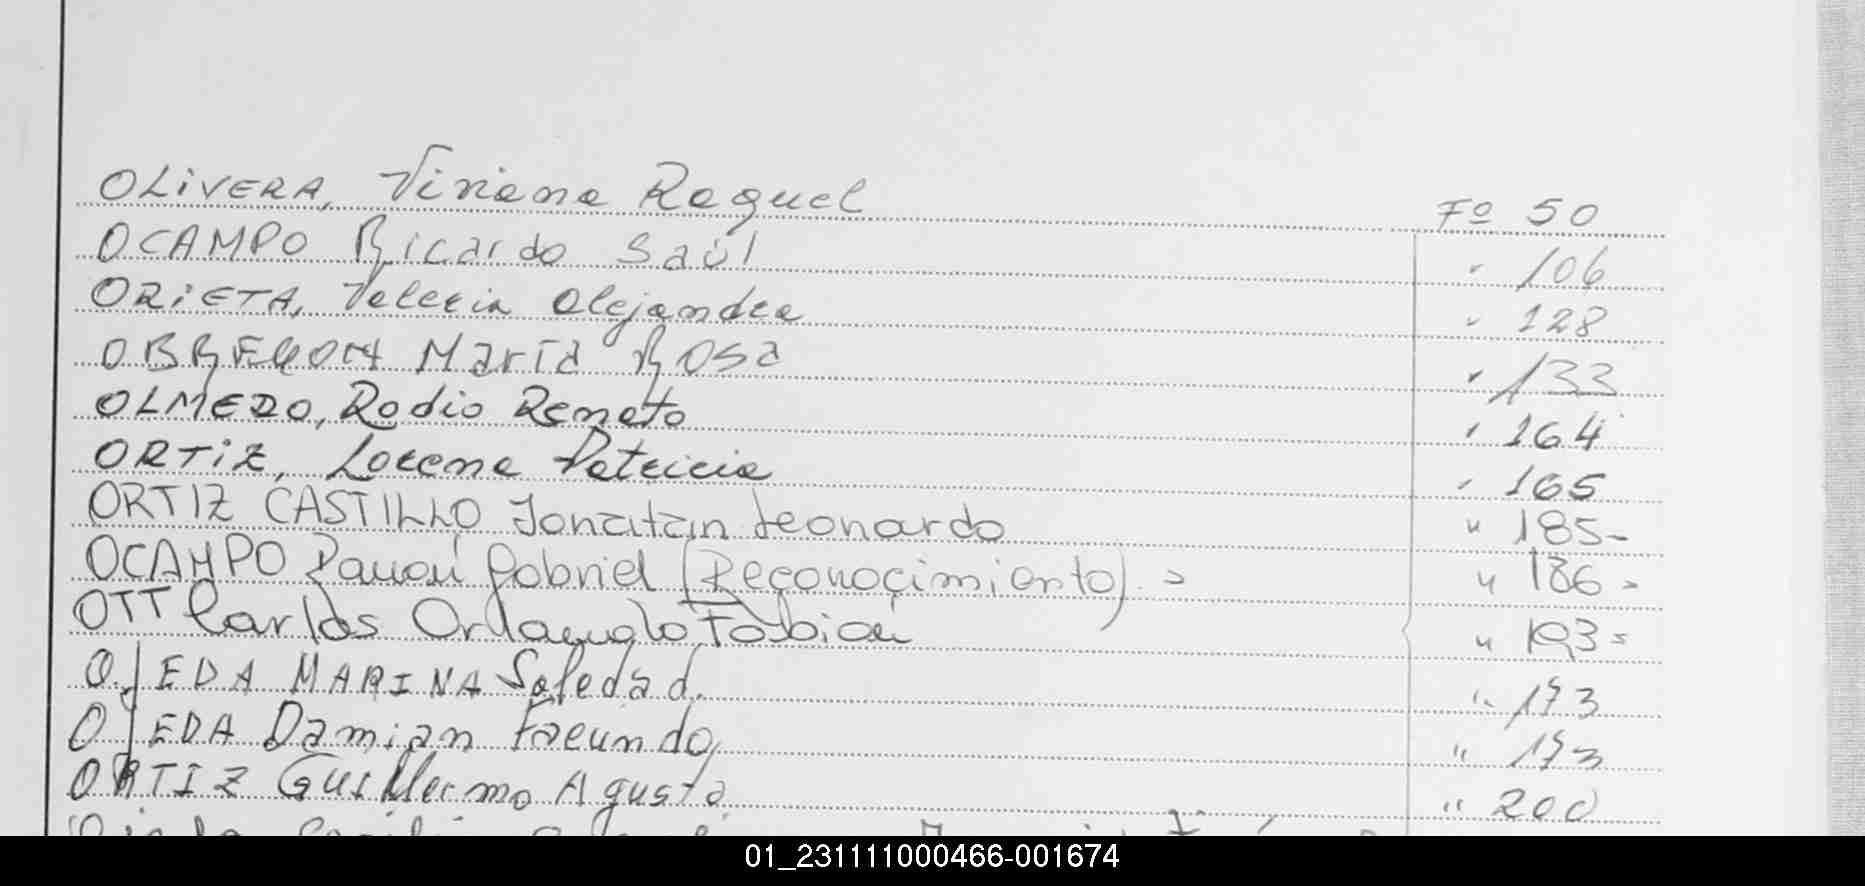 OLIVERA, Viviana Raquel Fº 50
OCAMPO Ricardo Saúl " 106
ORIETA, Valeria Alejandra " 128
OBREGON María Rosa " 133
OLMEDO, Rodio Renato " 164
ORTIZ, Lorena Patricia " 165
ORTIZ CASTILLO Jonatan Leonardo " 185-
OCAMPO Ramón Gabriel (Reconocimiento) = " 186=
OTT Carlos Orlando Fabian " 193=
OJEDA MARINA Soledad. " 193
OJEDA Damian Facundo, " 193
ORTIZ Guillermo Agusto " 200
01_231111000466-001674